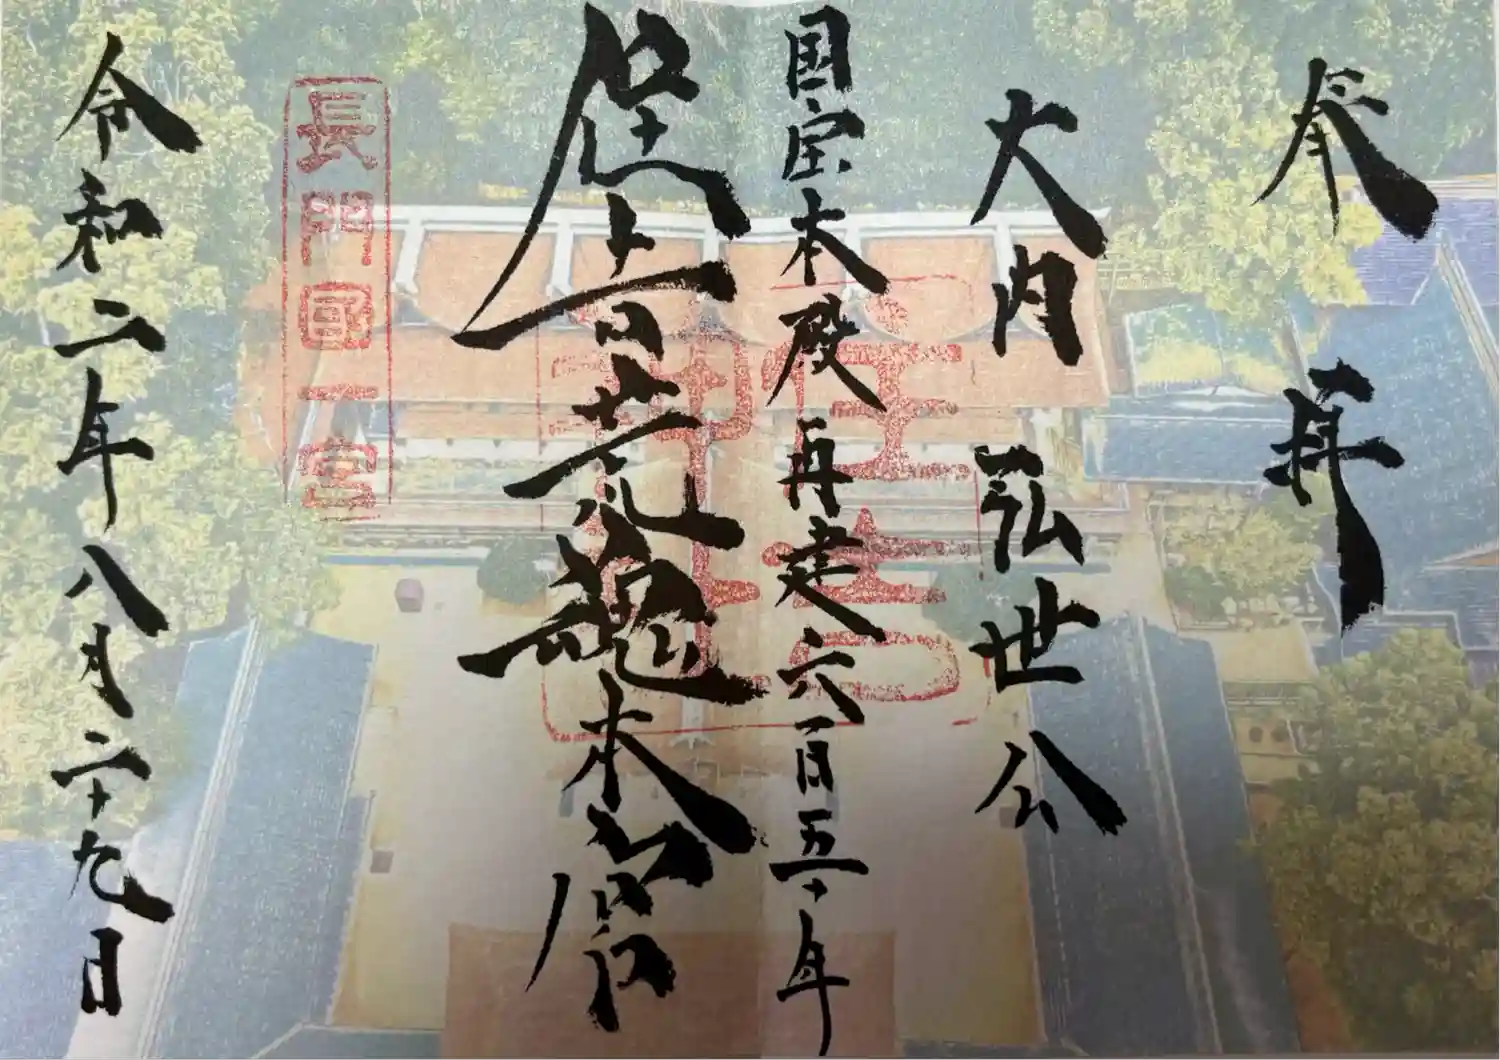 奉拝
大内弘世公
国宝本殿再建六百五十年
住吉荒魂本宮
住吉神社
長門國一宮
令和二年八月二十九日